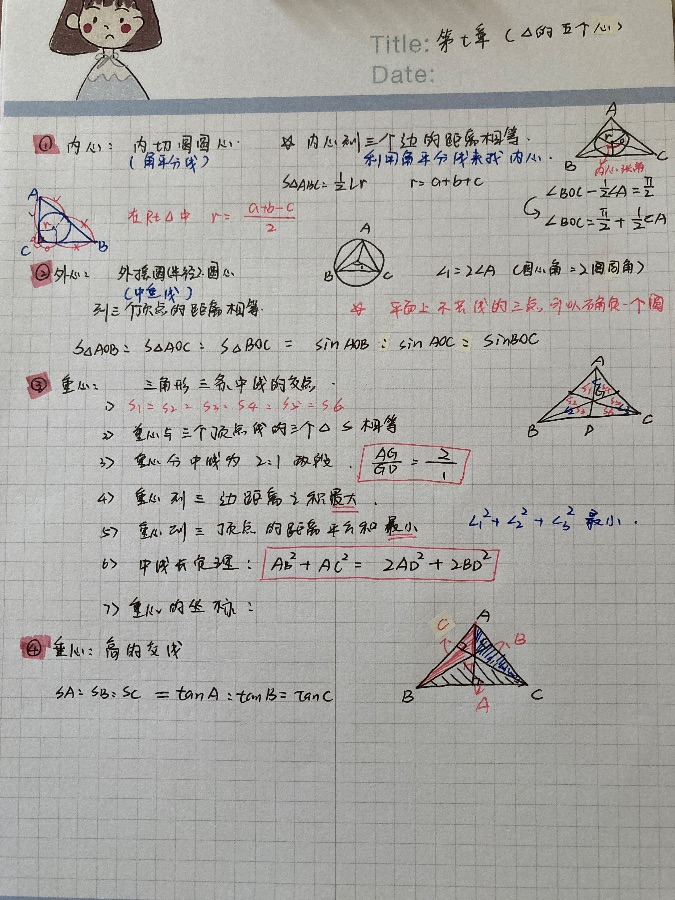 Title: 第七章 (△的五个心)
Date:
① 内心: 内切圆圆心. ☆ 内心到三个边的距离相等.
(角平分线) 利用角平分线来找内心.
S△ABC = 1/2 Lr r = a+b+c
A
B C
内心张角
∠BOC - 1/2∠A = π/2
∠BOC = π/2 + 1/2∠A
A
C B
在Rt△中 r = (a+b-c)/2
② 外心: 外接圆(半径)圆心
(中垂线)
到三个顶点的距离相等.
A
B C
∠1 = 2∠A (圆心角 = 2圆周角)
☆ 平面上不共线的三点,可以确定一个圆
S△AOB : S△AOC : S△BOC = sinAOB : sinAOC : sinBOC
③ 重心: 三角形三条中线的交点.
1) S1 = S2 = S3 = S4 = S5 = S6
2) 重心与三个顶点线的三个△ S相等
3) 重心分中线为 2:1 两段. AG/GD = 2/1
4) 重心到三边距离之积最大.
5) 重心到三顶点的距离平方和最小 L1² + L2² + L3² 最小.
6) 中线长定理: AB² + AC² = 2AD² + 2BD²
7) 重心的坐标:
A
G
B D C
④ 垂心: 高的交线
SA : SB : SC = tanA : tanB = tanC
A
C B
B C
A